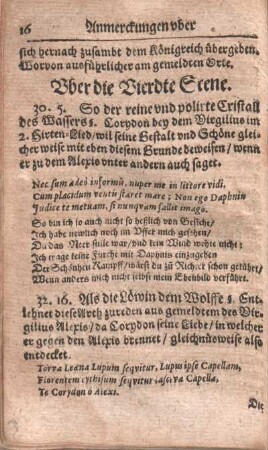 16 Anmerckungen vber
sich hernach zusambt dem Königreich übergeben.
Worvon außführlicher am gemeldten Orte.
Vber die Vierdte Scene.
30. 5. So der reine vnd polirte Cristall
des Wassers s. Corydon bey dem Virgilius im
2. Hirten-Lied/ wil seine Gestalt vnd Schöne gleicher
weise mit eben diesem Grunde beweisen/ wenn
er zu dem Alexis vnter andern auch saget.
Nec sum adeò informis. nuper me in littore vidi,
Cum placidum ventis staret mare; Non ego Daphnin
Judice te metuam, si nunqvam fallit imago.
So bin ich so auch nicht so heßlich von Gesicht/
Ich habe newlich noch im Vffer mich gesehen/
Da das Meer stille war/ vnd kein Wind wehte nicht;
Ich trage keine Furcht mit Daphnis einzugehen
Der Schönheit Kampff/ wärst du zu Richter schon geführt/
Wenn anders mich nicht selbst mein Ebenbild verführt.
32. 16. Als die Löwin dem Wolffe s. Entlehnet
diese Arth zureden aus gemeldtem des Virgilius
Alexis/ da Corydon seine Liebe/ in welcher
er gegen den Alexis brennet/ gleichnüsweise also
entdecket.
Torva Leæna Lupum seqvitur, Lupus ipse Capellam,
Florentem cythisum seqvitur lasciva Capella,
Te Corydon ô Alexi.
Die